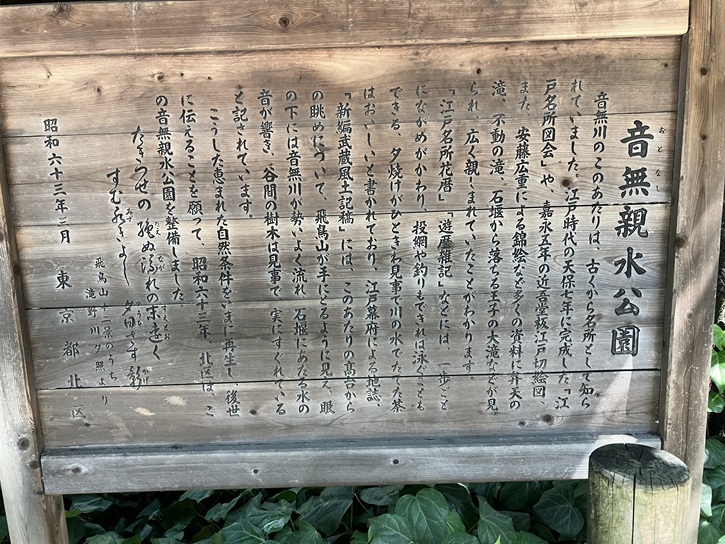 音無親水公園
おとなし
音無川のこのあたりは、古くから名所として知ら
れていました。江戸時代の天保七年に完成した「江
戸名所図会」や、嘉永五年の近吾堂板江戸切絵図、
また、安藤広重による錦絵など多くの資料に弁天の
滝、不動の滝、石堰から落ちる王子の大滝などが見
られ、広く親しまれていたことがわかります。
「江戸名所花暦」「遊歴雑記」などには、一歩ごと
にながめがかわり、投網や釣りもできれば泳ぐことも
できる、夕焼けがひときわ見事で川の水でたてた茶
はおいしいと書かれており、江戸幕府による地誌
「新編武蔵風土記稿」には、このあたりの高台から
の眺めについて、飛鳥山が手にとるように見え、眼
の下には音無川が勢いよく流れ、石堰にあたる水の
音が響き、谷間の樹木は見事で、実にすぐれている
と記されています。
こうした恵まれた自然条件をいまに再生し、後世
に伝えることを願って、昭和六十三年、北区は、こ
の音無親水公園を整備しました。
たきつせの絶ぬ流れの末遠く
すむ水きよし夕日さす影
飛鳥山十二景のうち
滝野川夕照より
昭和六十三年三月
東京都北区